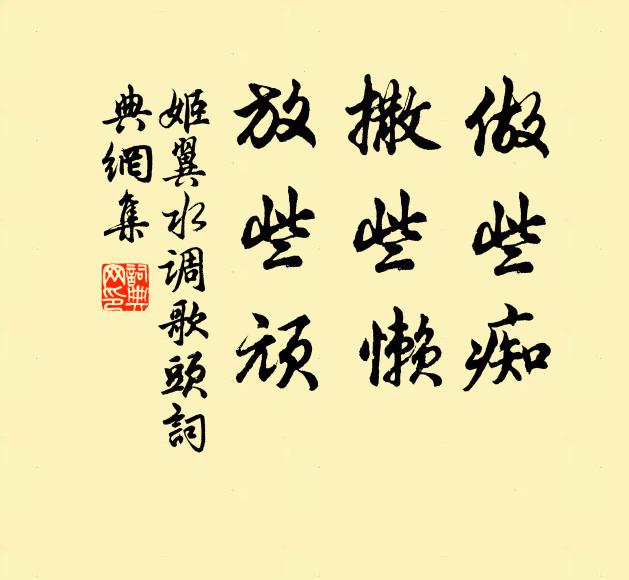 做些痴
撒些懒
放些顽
姬翼水调歌頭詞
典網集
詞典
网印